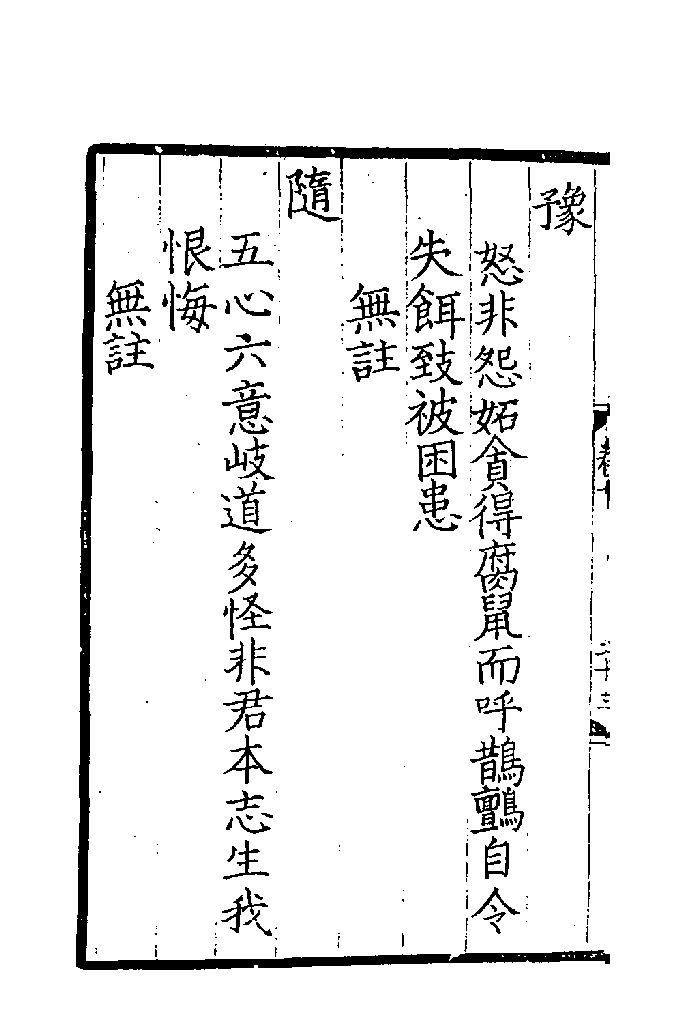 豫
怒非怨妬貪得腐鼠而呼鵲鸇自令
失餌致被困患
無註
隨
五心六意岐道多怪非君本志生我
恨悔
無註